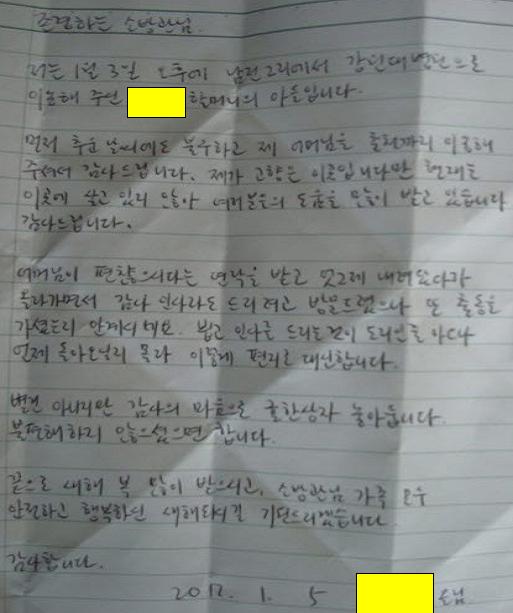 존경하는 소방관님.
저는 1월 3일 오후에 남전그리에서 강원대병원으로
이송해 주신 할머니의 아들입니다.
먼저 추운 날씨에도 불구하고 제 어머님을 춘천까지 이송해
주셔서 감사드립니다. 제가 고향은 이곳입니다만 현재는
이곳에 살고 있지 않아 여러분들의 도움을 많이 받고 있습니다
감사드립니다.
어머님이 편찮으시다는 연락을 받고 엊그제 내려왔다가
올라가면서 감사 인사라도 드리려고 방문드렸으나 또 출동을
가셨는지 안계시네요. 뵙고 인사를 드리는것이 도리인줄 아오나
언제 돌아오실지 몰라 이렇게 편지로 대신합니다.
별건 아니지만 감사의 마음으로 귤한상자 놓아둡니다.
불편해하지 않으셨으면 합니다.
끝으로 새해 복 많이 받으시고, 소방관님 가족 모두
안전하고 행복하신 새해되시길 기원드리겠습니다.
감사합니다.
2012. 1. 5 드림